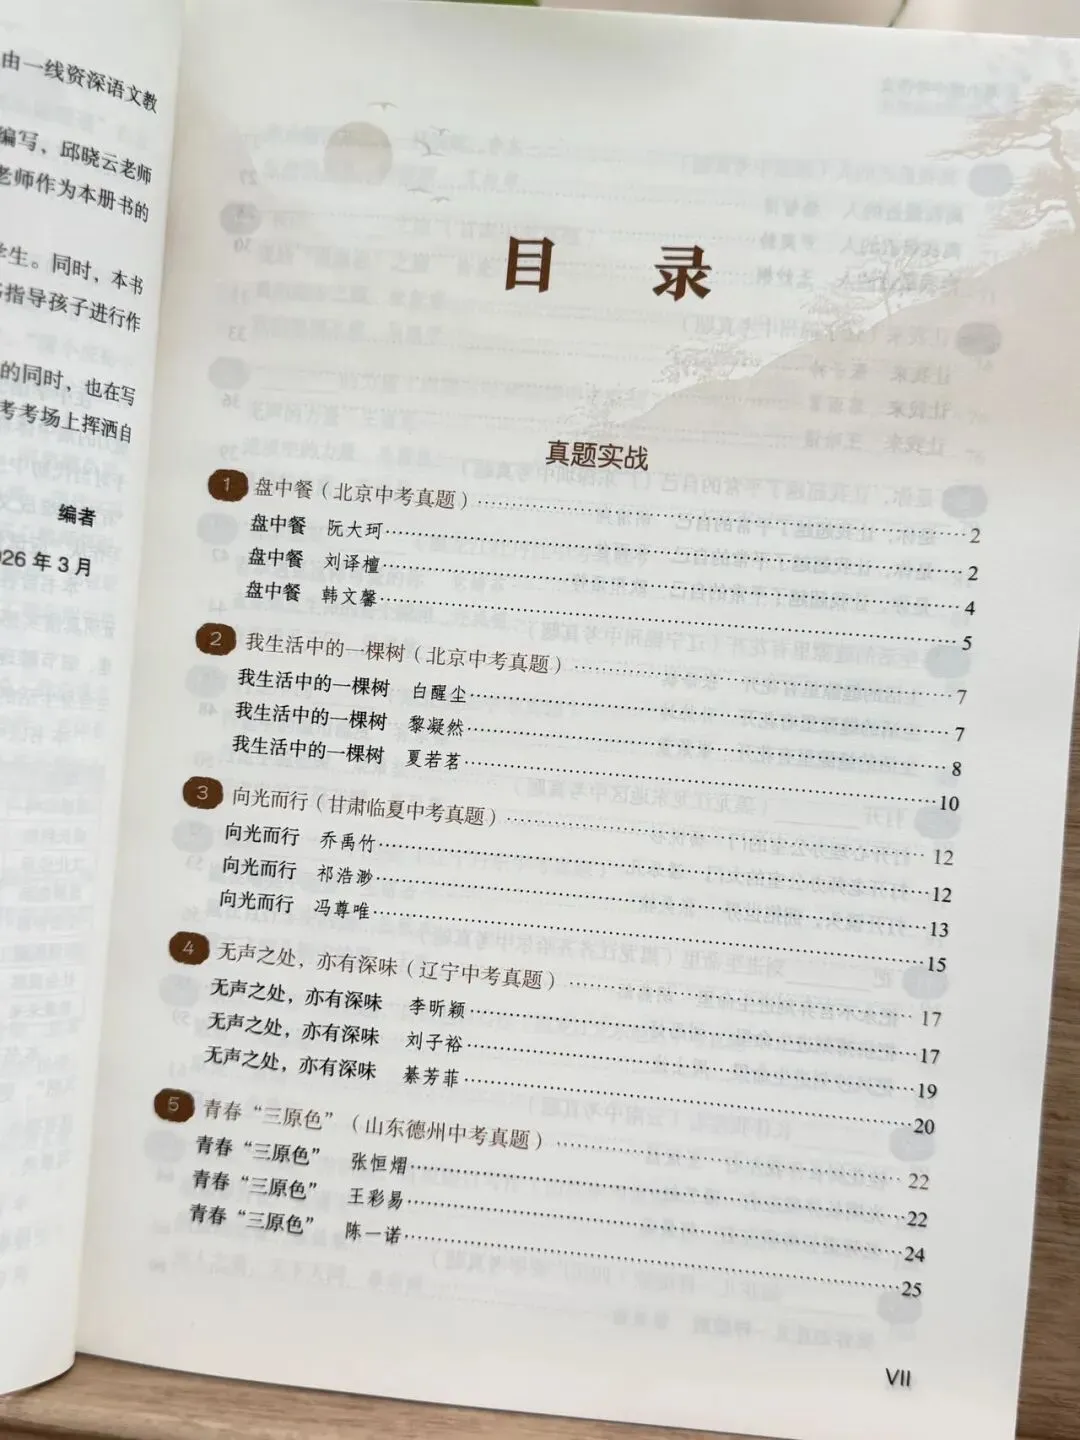 由一线资深语文教
编写，邱晓云老师
老师作为本册书的
学生。同时，本书
指导孩子进行作
的同时，也在写
考考场上挥洒自
编者
026年3月
目 录
真题实战
1 盘中餐（北京中考真题） 2
盘中餐 阮大珂 2
盘中餐 刘译檀 4
盘中餐 韩文馨 5
2 我生活中的一棵树（北京中考真题） 7
我生活中的一棵树 白醒尘 7
我生活中的一棵树 黎凝然 8
我生活中的一棵树 夏若茗 10
3 向光而行（甘肃临夏中考真题） 12
向光而行 乔禹竹 12
向光而行 祁浩渺 13
向光而行 冯尊唯 15
4 无声之处，亦有深味（辽宁中考真题） 17
无声之处，亦有深味 李昕颖 17
无声之处，亦有深味 刘子裕 19
无声之处，亦有深味 綦芳菲 20
5 青春“三原色”（山东德州中考真题） 22
青春“三原色” 张恒熠 22
青春“三原色” 王彩易 24
青春“三原色” 陈一诺 25
VII